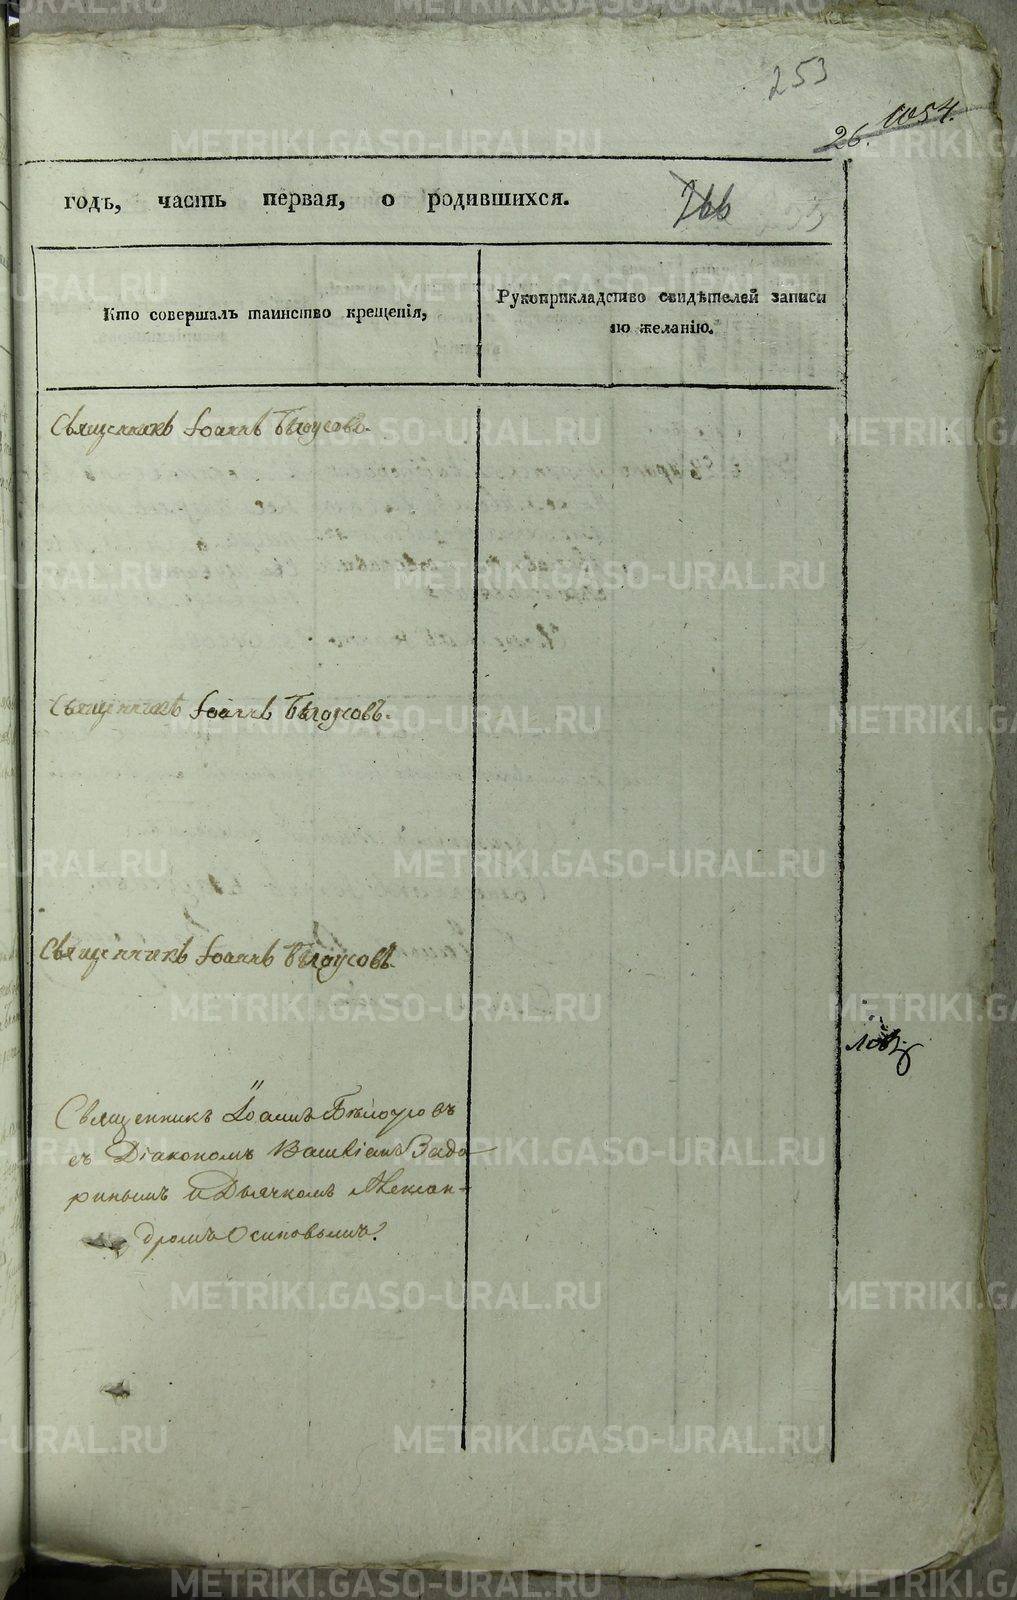 253
26. 1054.
годъ, часть первая, о родившихся.
266
Кто совершалъ таинство крещенія,
Рукоприкладство свидѣтелей записи
по желанію.
Священникъ Іоаннъ Бѣлоусовъ.
Священникъ Іоаннъ Бѣлоусовъ.
Священникъ Іоаннъ Бѣлоусовъ.
ловъ
Священникъ Іоаннъ Бѣлоусовъ
съ Діакономъ
и Дьячкомъ Алексан-
дромъ Осиповымъ.
METRIKI.GASO-URAL.RU